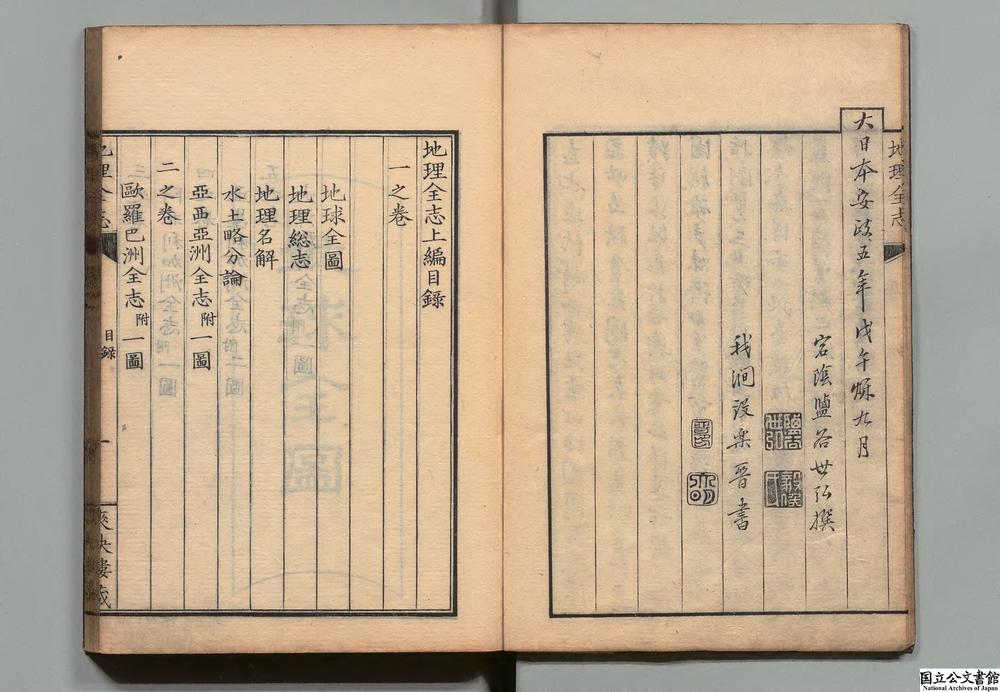 地理全志
大日本安政五年戊午穐九月
宕陰鹽谷世弘撰
我澗設樂晉書
地理全志上編目錄
一之卷
地球全圖
地理総志
地理名解
水土略分論
亞西亞洲全志附一圖
二之卷
歐羅巴洲全志附一圖
地理全志
目錄
一
爽快樓藏
国立公文書館
National Archives of Japan